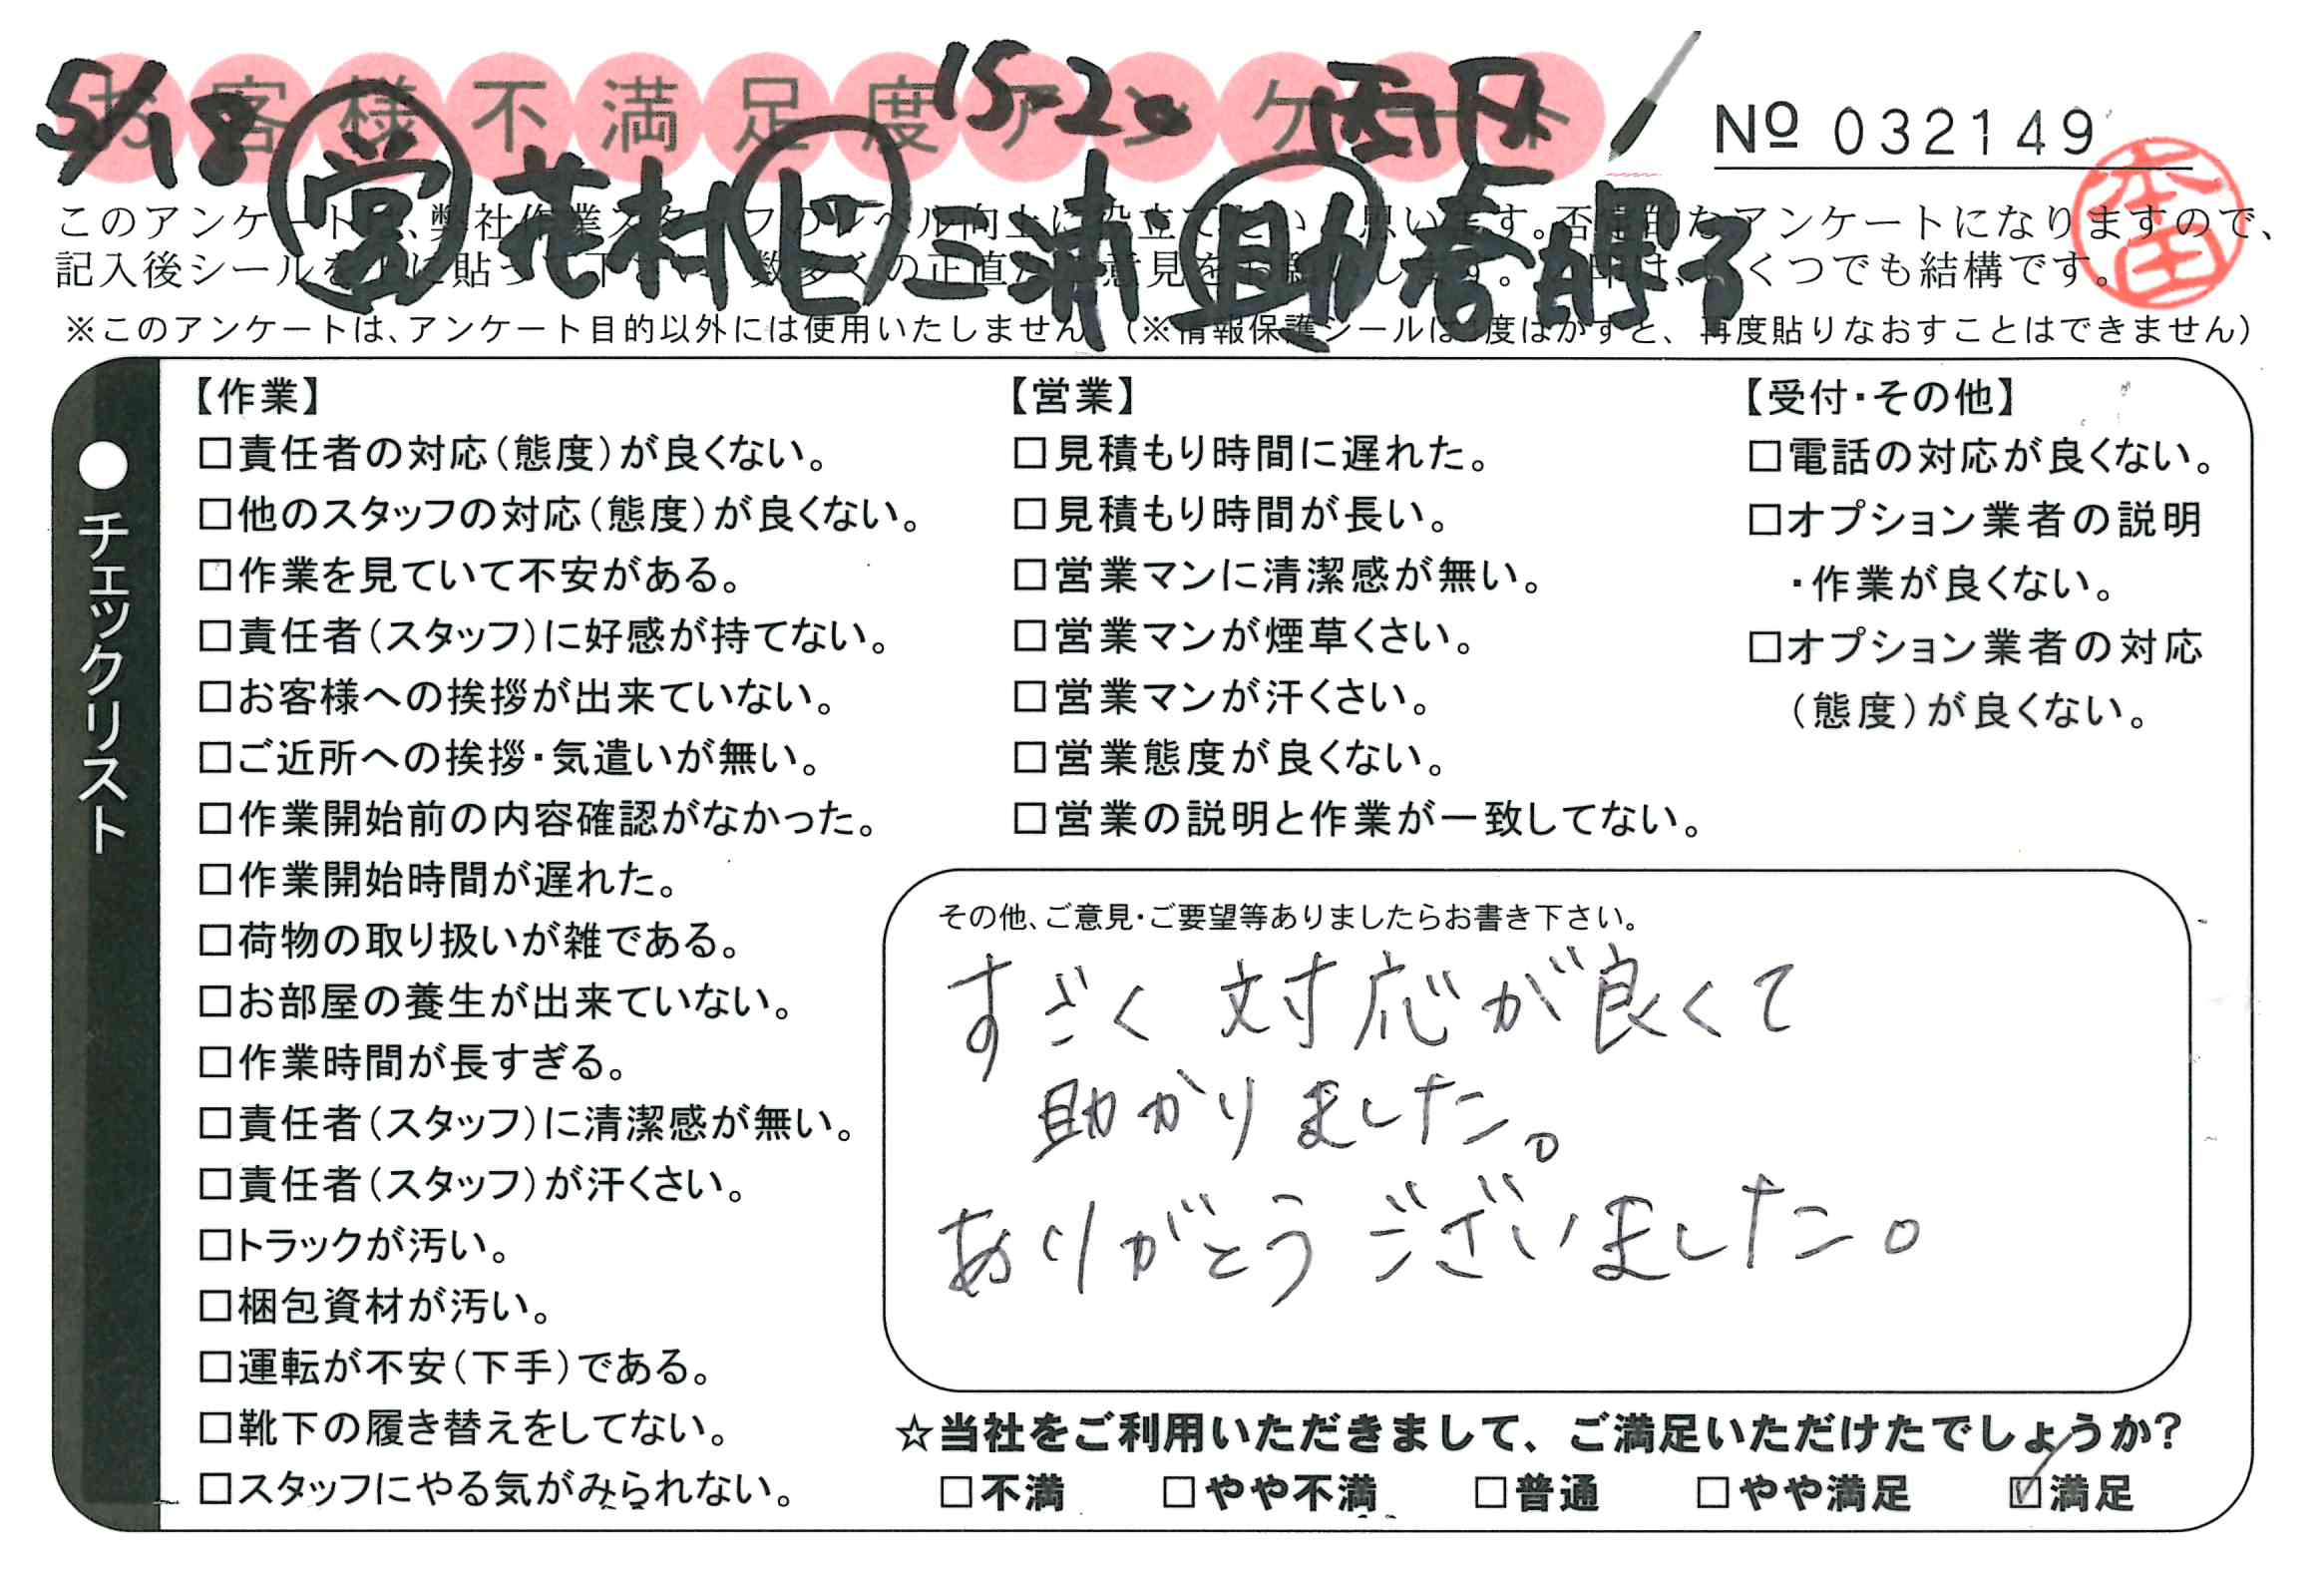 お客様不満足度アンケート
5/18 15-20 西区
№ 032149
営 花村 ド 三浦 助
このアンケート、弊社作業スタッフのレベル向上に役立てたいと思います。否定的なアンケートになりますので、
記入後シールを上に貼って下さい。数多くの正直な意見をお願いします。は、いくつでも結構です。
※このアンケートは、アンケート目的以外には使用いたしません（※情報保護シールは1度はがすと、再度貼りなおすことはできません）
●チェックリスト
【作業】
□責任者の対応（態度）が良くない。
□他のスタッフの対応（態度）が良くない。
□作業を見ていて不安がある。
□責任者（スタッフ）に好感が持てない。
□お客様への挨拶が出来ていない。
□ご近所への挨拶・気遣いが無い。
□作業開始前の内容確認がなかった。
□作業開始時間が遅れた。
□荷物の取り扱いが雑である。
□お部屋の養生が出来ていない。
□作業時間が長すぎる。
□責任者（スタッフ）に清潔感が無い。
□責任者（スタッフ）が汗くさい。
□トラックが汚い。
□梱包資材が汚い。
□運転が不安（下手）である。
□靴下の履き替えをしてない。
□スタッフにやる気がみられない。
【営業】
□見積もり時間に遅れた。
□見積もり時間が長い。
□営業マンに清潔感が無い。
□営業マンが煙草くさい。
□営業マンが汗くさい。
□営業態度が良くない。
□営業の説明と作業が一致してない。
【受付・その他】
□電話の対応が良くない。
□オプション業者の説明
・作業が良くない。
□オプション業者の対応
（態度）が良くない。
その他、ご意見・ご要望等ありましたらお書き下さい。
すごく対応が良くて
助かりました。
ありがとうございました。
☆当社をご利用いただきまして、ご満足いただけたでしょうか?
□不満 □やや不満 □普通 □やや満足 ☑満足